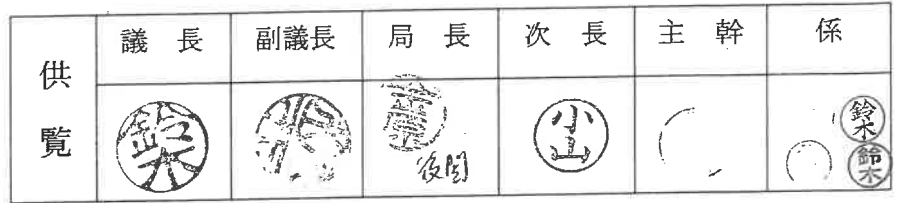 供覧
議長 副議長 局長 次長 主幹 係
鈴木 後閲 小山 鈴木
鈴木